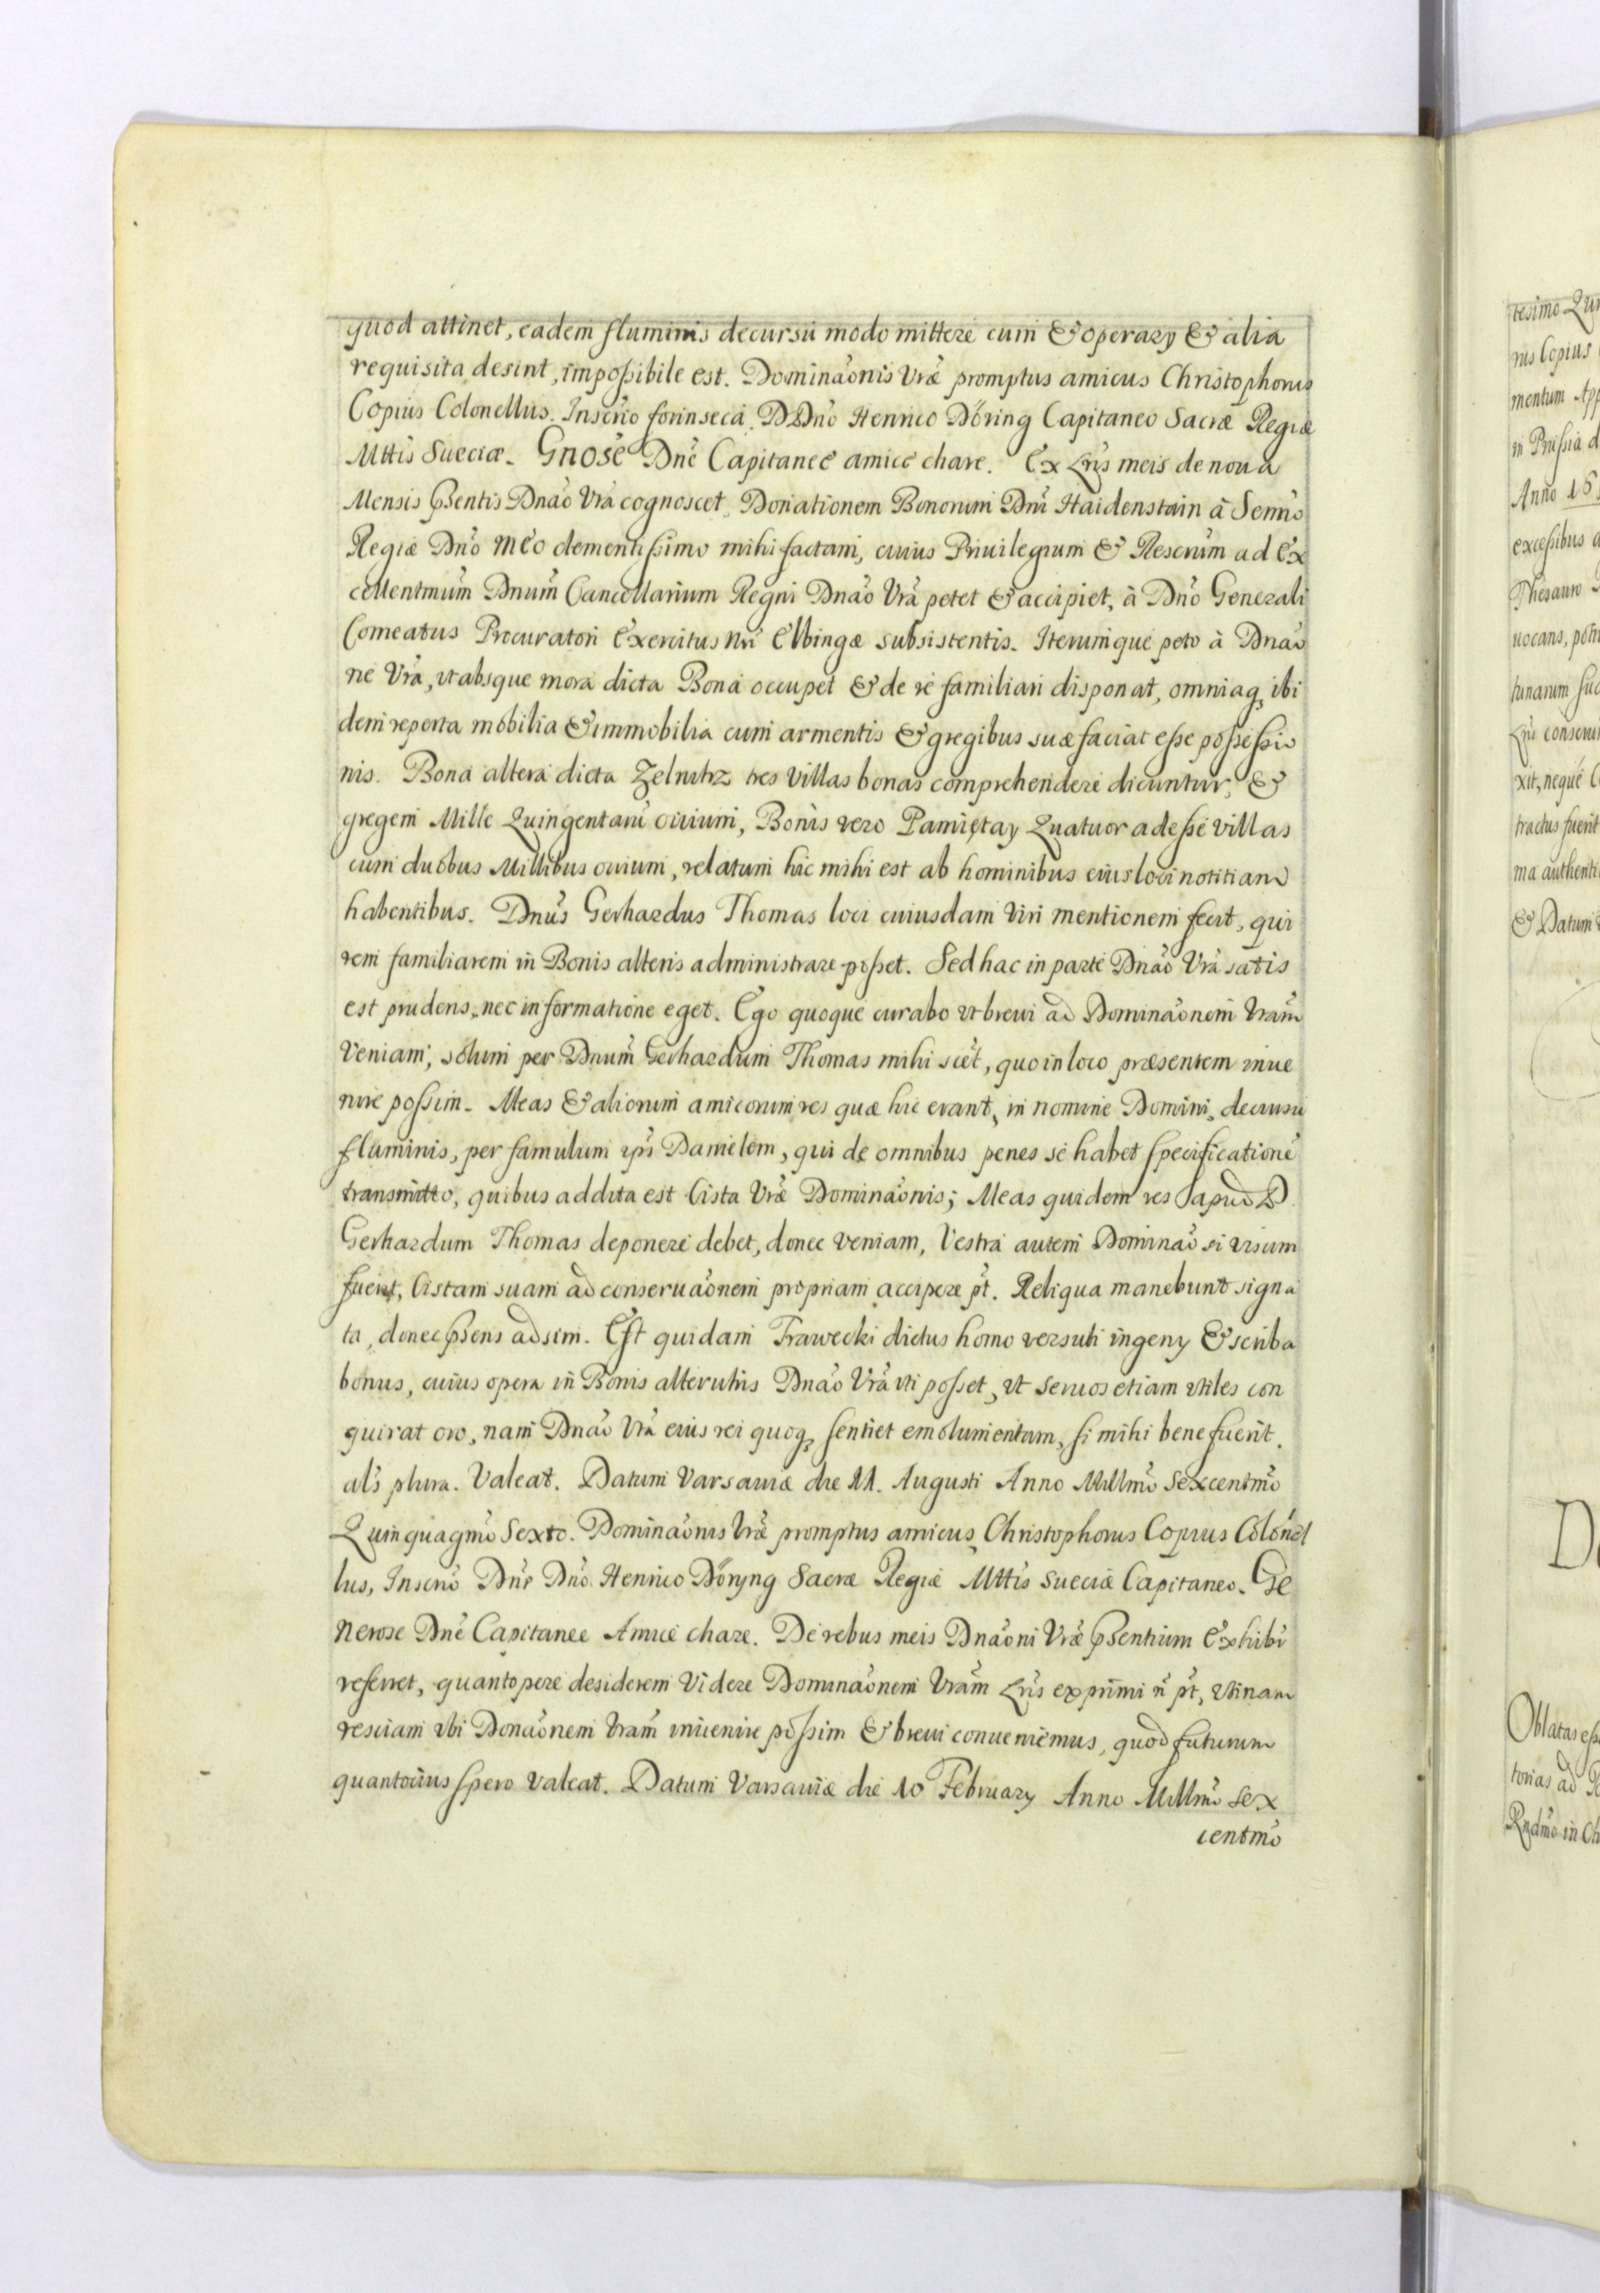 quod attinet, eadem fluminis decursu modo mittere cum & operary & alia
requisita desint, impossibile est. Dominãonis Vræ promptus amicus Christophorus
Copius Colonellus. Inscrio forinseca. D Dno Henrico Döring Capitaneo Sacræ Regiæ
Mttis Sueciæ. Gnose Dne Capitanee amice chare. Ex Lris meis de nona
Mensis pñtis Dnao Vra cognoscet, Donationem Bonorum Dni Haidenstain à Sermo
Rege Dno meo clementissimo mihi factam, cuius Priuilegium & Rescrum ad Ex
cellentmum Dnum Cancellarium Regni Dnao Vra petet & accipiet, à Dno Generali
Comeatus Procuratori Exercitus nri Elbingæ subsistentis. Iterumque peto à Dnao
ne Vra, vt absque mora dicta Bona occupet & de re familiari disponat, omniaq, ibi
dem reperta mobilia & immobilia cum armentis & gregibus suæ faciat esse possessio
nis. Bona altera dicta Zelnitrz tres villas bonas comprehendere dicuntur, &
gregem Mille Quingentaru ouium, Bonis vero Pamiętay Quatuor adesse villas
cum duobus Millibus ouium, relatum hic mihi est ab hominibus eius loci notitiam
habentibus. Dnus Gerhardus Thomas loci cuiusdam Viri mentionem fecit, qui
rem familiarem in Bonis alteris administrare posset. Sed hac in parte Dnao Vra satis
est prudens, nec informatione eget. Ego quoque curabo vt breui ad Dominãonem Vram
Veniam, solum per Dnum Gerhardum Thomas mihi scret, quo in loco præsentem inue
nire possim. Meas & aliorum amicorum res quæ hic erant, in nomine Domini, decursu
fluminis, per famulum ipi Danielem, qui de omnibus penes se habet specificatione
transmitto, quibus addita est Cista Vræ Dominãonis; Meas quidem res apud D
Gerhardum Thomas deponere debet, donec veniam, Vestra autem Dominao si visum
fuerit, Cistam suam ad conseruãonem propriam accipere pt. Reliqua manebunt signa
ta, donec pñsens adsim. Est quidam Trawecki dictus homo versuti ingeny & scriba
bonus, cuius opera in Bonis alterutris Dnao Vra vti posset, vt seruos etiam vtiles con
quirat oro, nam Dnao Vra eius rei quoq, sentiet emolumentum, si mihi bene fuerit.
als plura. Valeat. Datum Varsauiæ die 11. Augusti Anno Millmo Sexcentmo
Quinquagmo Sexto. Dominãonis Vræ promptus amicus Christophorus Copius Colonel
lus, Inscrio Dnr Dno Henrico Döryng Sacræ Regiæ Mttis Sueciæ Capitaneo. Ge
nerose Dne Capitanee Amice chare. De rebus meis Dnaoni Vræ pñsentium Exhibr
referret, quantopere desiderem Videre Dominãonem Vram Lris exprimi n pt, Vtinam
resciam vbi Donãonem Vram inuenire possim & breui conueniemus, quod futurum
quantocius spero. Valeat. Datum Varsauiæ die 10 February Anno Millmo Sex
centmo
tesimo Qui
rus Copius
mentum App
in Prussia d
excessibus a
Thesauro
uocans, poni
tunarum suo
xit, neque C
tractus fuerit
ma authenti
& Datum
Oblatas ess
torias ad Re